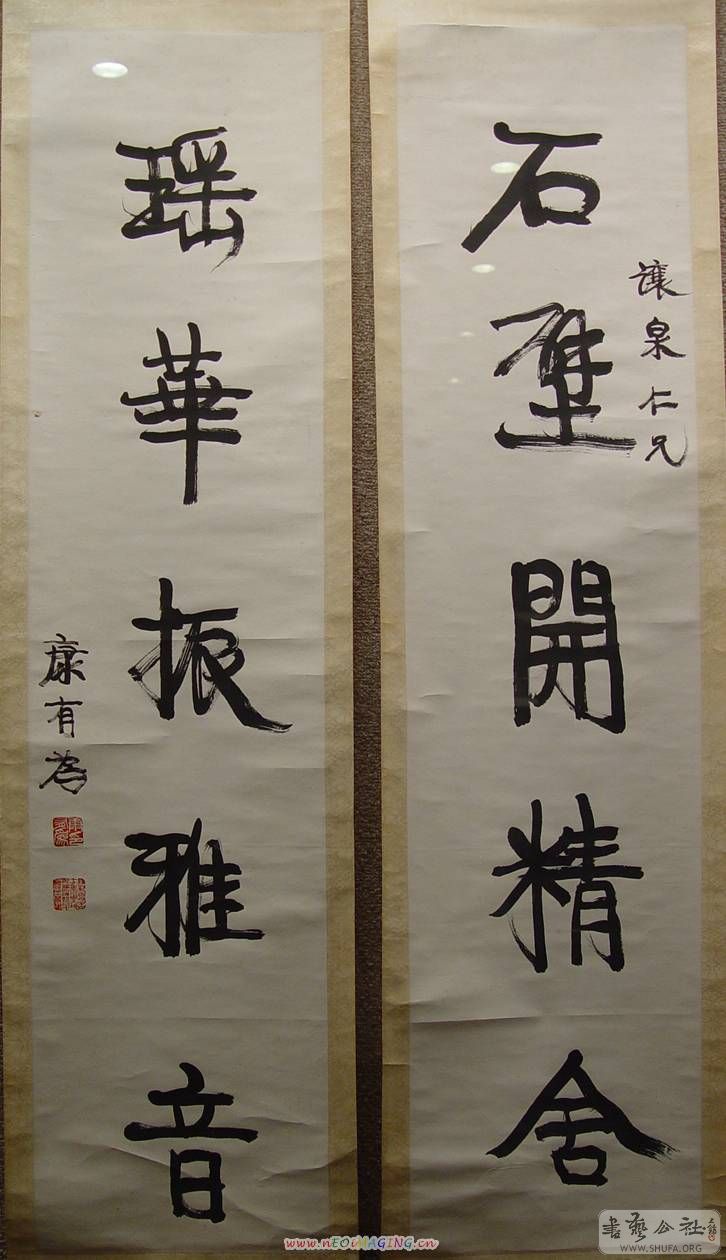 讓泉仁兄
石壁開精舍
瑶華振雅音
康有為
www.nEOiMAGiNG.cn
書藝公社
WWW.SHUFA.ORG